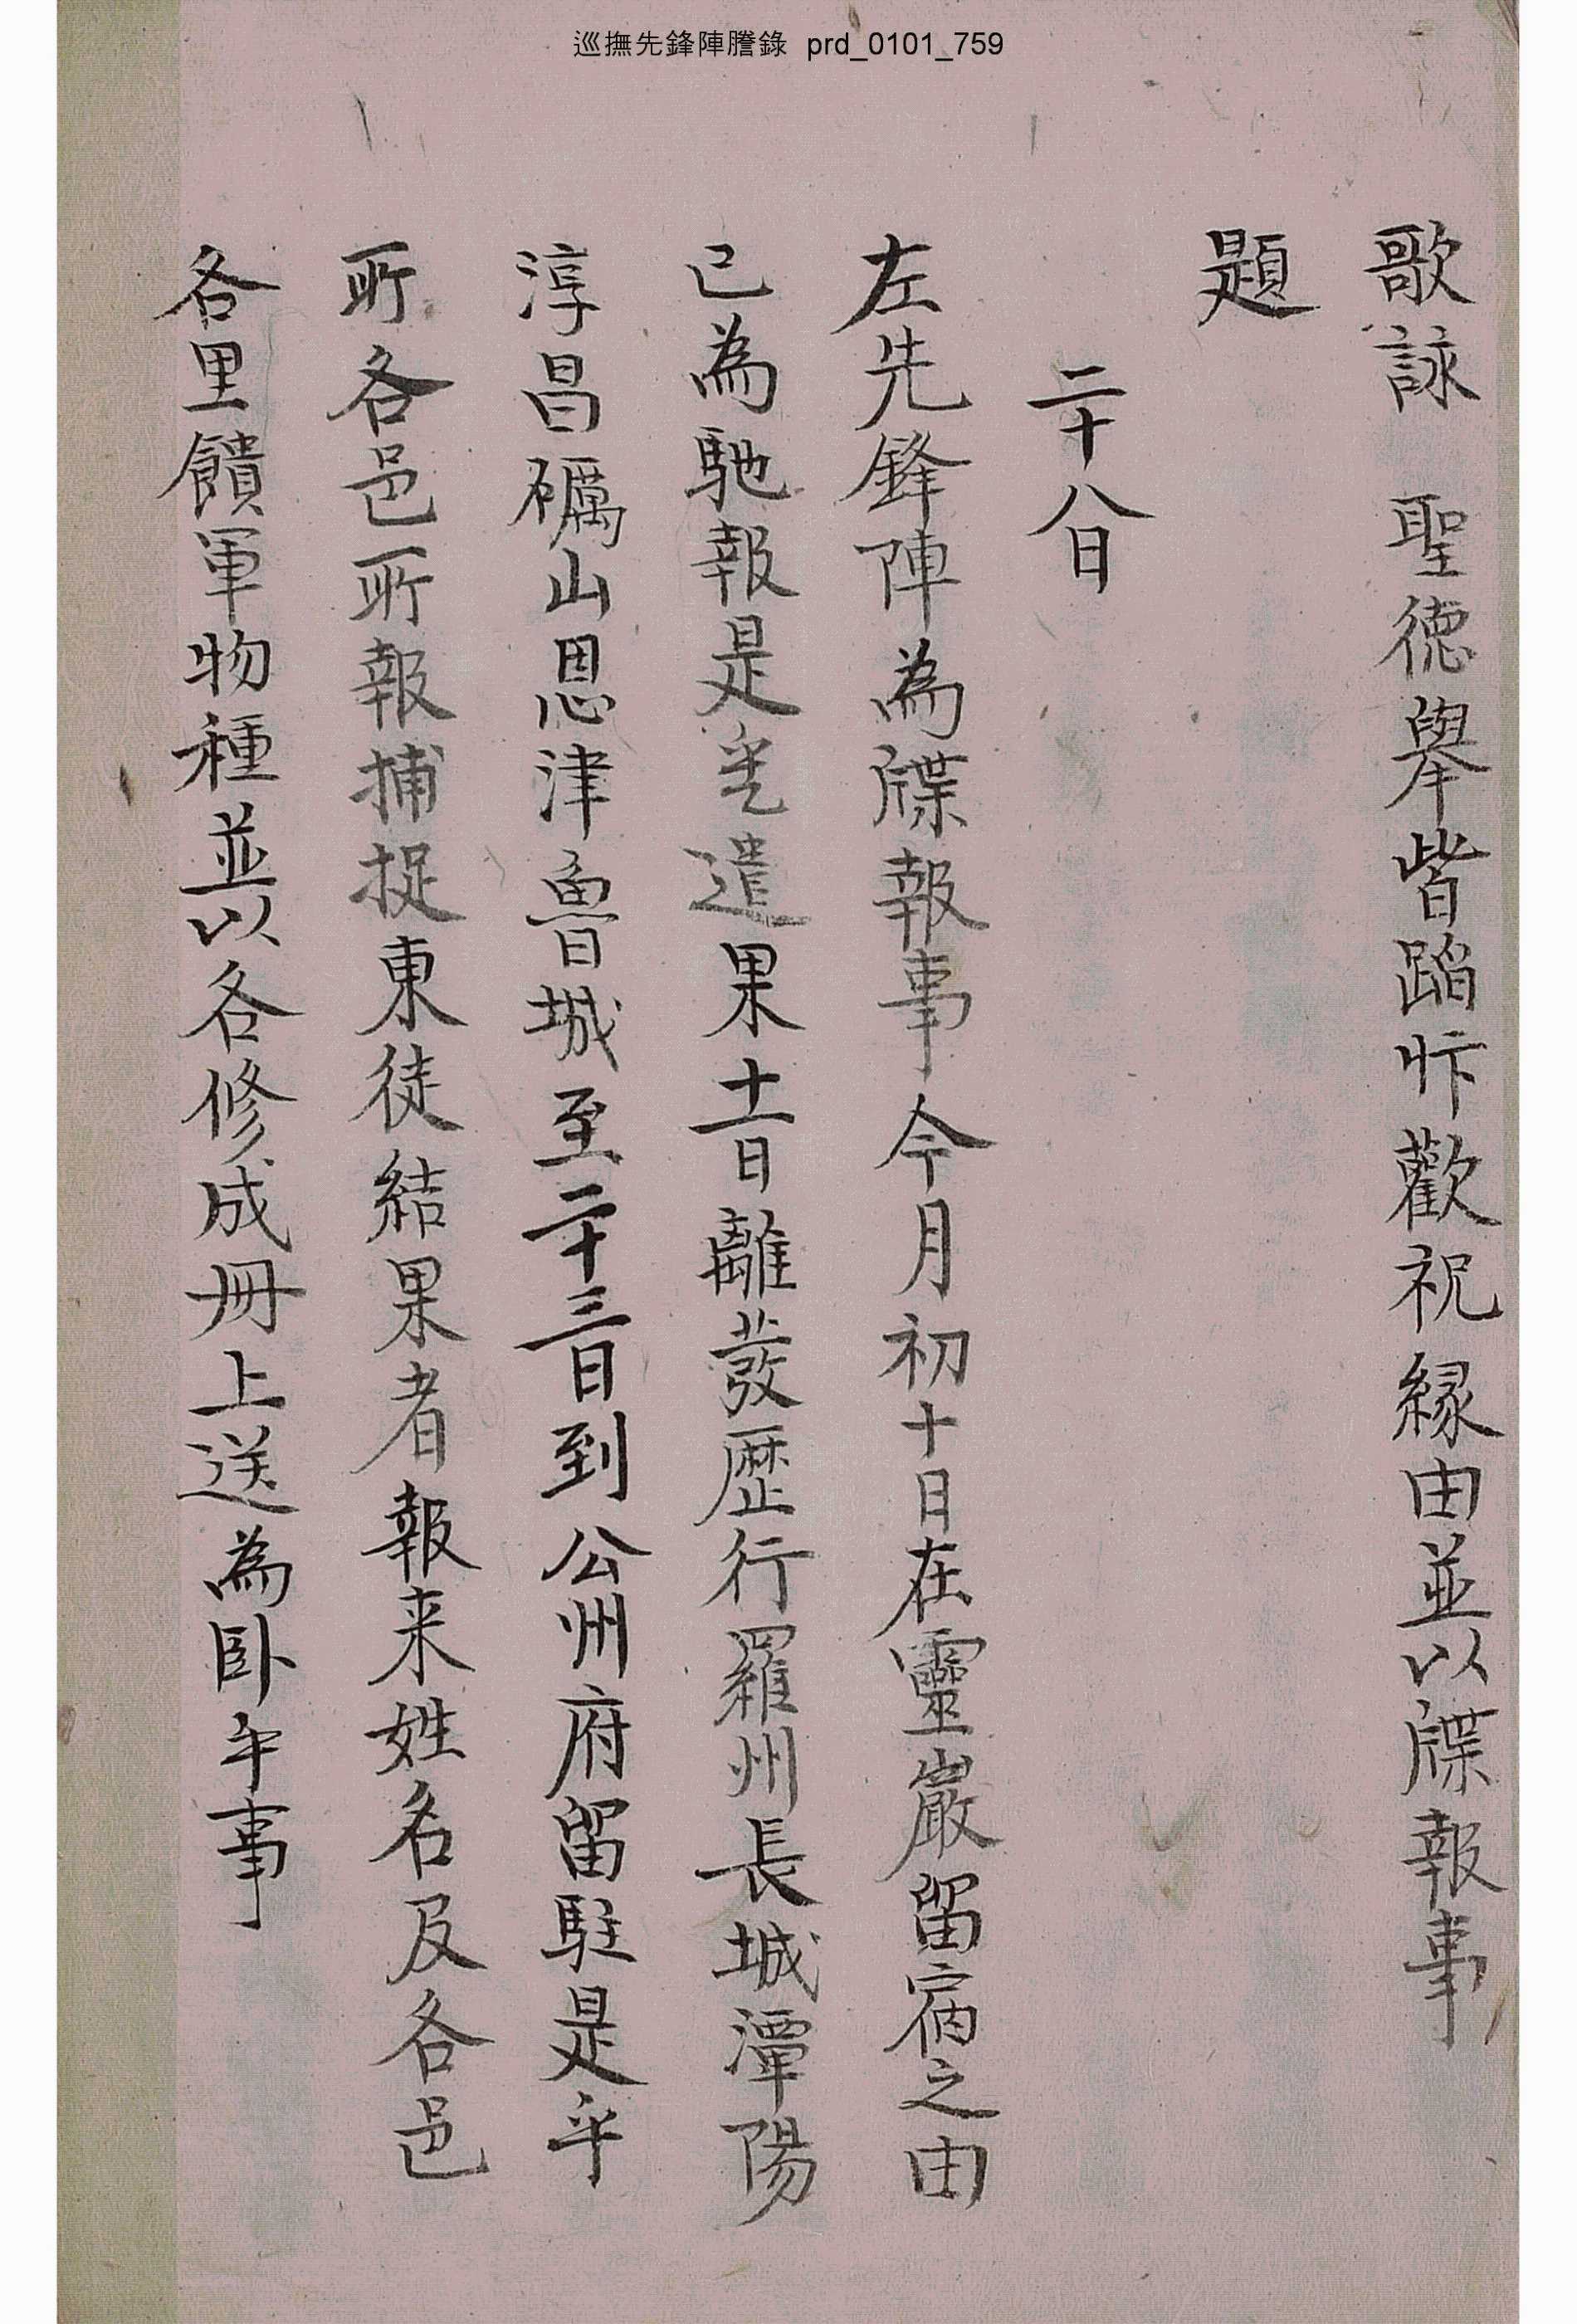 巡撫先鋒陣謄錄 prd_0101_759
歌詠 聖德擧皆蹈忭歡祝緣由並以牒報事
題
二十八日
左先鋒陣為牒報事今月初十日在靈巖留宿之由
已為馳報是遣果十二日離發歷行羅州長城潭陽
淳昌礪山恩津魯城至二十三日到公州府留駐是乎
所各邑所報捕捉東徒結果者報来姓名及各邑
各里饋軍物種並以各修成冊上送為臥乎事